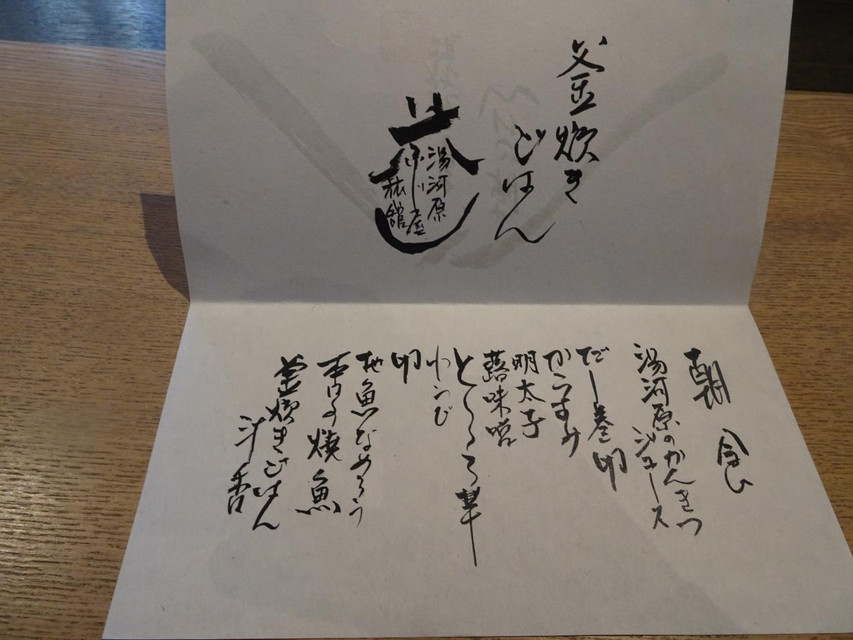 釜炊き
ごはん
湯河原
旅館
朝食
湯河原のかんきつ
ジュース
だし巻卵
からすみ
明太子
蕗味噌
とろろ芋
わらび
卵
地魚なめろう
本日の焼魚
釜炊きごはん
汁 香